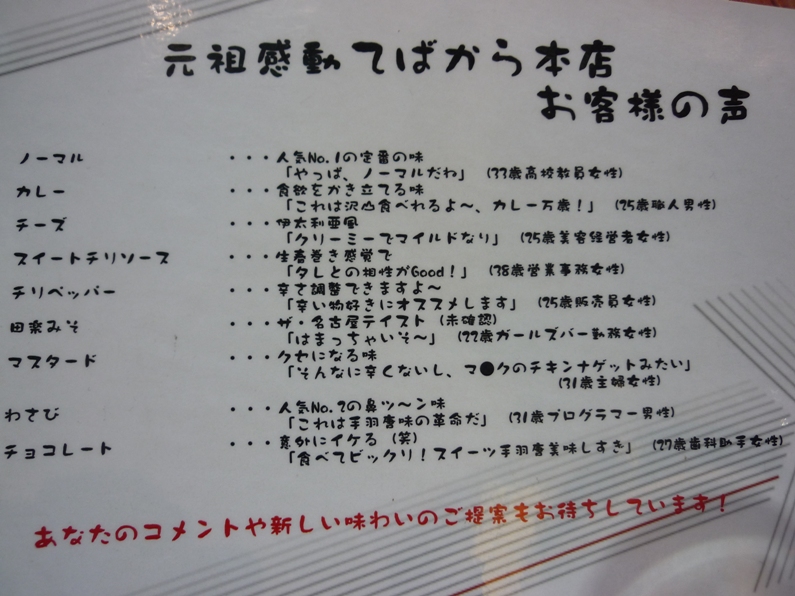 元祖感動てばから本店
お客様の声
ノーマル ・・・人気No.1の定番の味
「やっぱ、ノーマルだわ」（33歳高校教員女性）
カレー ・・・食欲をかき立てる味
「これは沢山食べれるよ〜、カレー万歳！」（25歳職人男性）
チーズ ・・・伊太利亜風
「クリーミーでマイルドなり」（25歳美容経営者女性）
スイートチリソース ・・・生春巻き感覚で
「タレとの相性がGood！」（38歳営業事務女性）
チリペッパー ・・・辛さ調整できますよ〜
「辛い物好きにオススメします」（25歳販売員女性）
田楽みそ ・・・ザ・名古屋テイスト（未確認）
「はまっちゃいそ〜」（22歳ガールズバー勤務女性）
マスタード ・・・クセになる味
「そんなに辛くないし、マ●クのチキンナゲットみたい」
（31歳主婦女性）
わさび ・・・人気No.2の鼻ツ〜ン味
「これは手羽唐味の革命だ」（31歳プログラマー男性）
チョコレート ・・・意外にイケる（笑）
「食べてビックリ！スイーツ手羽唐美味しすき」（27歳歯科助手女性）
あなたのコメントや新しい味わいのご提案もお待ちしています！